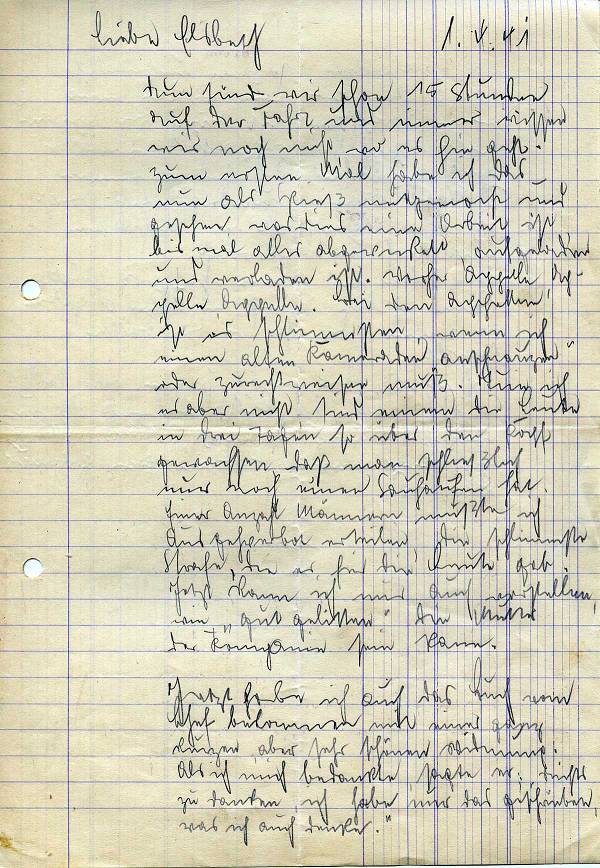 Liebe Elsbeth 1. V. 41
Nun sind wir schon 15 Stunden
auf der Fahrt und immer wissen
wir noch nicht wo es hin geht.
Zum ersten Mal habe ich das
nun als Spieß mitgemacht und
gesehen was dies eine Arbeit ist
bis mal alles abgewickelt aufgeladen
und verladen ist. Vorher Appelle Ap-
pelle Appelle. Bei den
ist es schlimmsten, wenn ich
einen alten Kameraden "anschnauzen"
oder zurechtweisen muß. Tue ich
es aber nicht sind einem die Leute
in drei Tagen so über den Kopf
gewachsen, daß man schließlich
nur noch einen Sauhaufen hat.
Einer Anzahl Männern mußte ich
Ausgehverbot erteilen, die schlimmste
Strafe, die es für die Leute gab.
Jetzt kann ich mir auch vorstellen,
wie "gut gelitten" die Mutter
der Kompanie sein kann.
Jetzt habe ich auch das Buch vom
Chef bekommen mit einer ganz
kurzen aber sehr schönen Widmung.
Als ich mich bedankte sagte er: Nichts
zu danken, ich habe mir das geschrieben,
was ich auch denke."